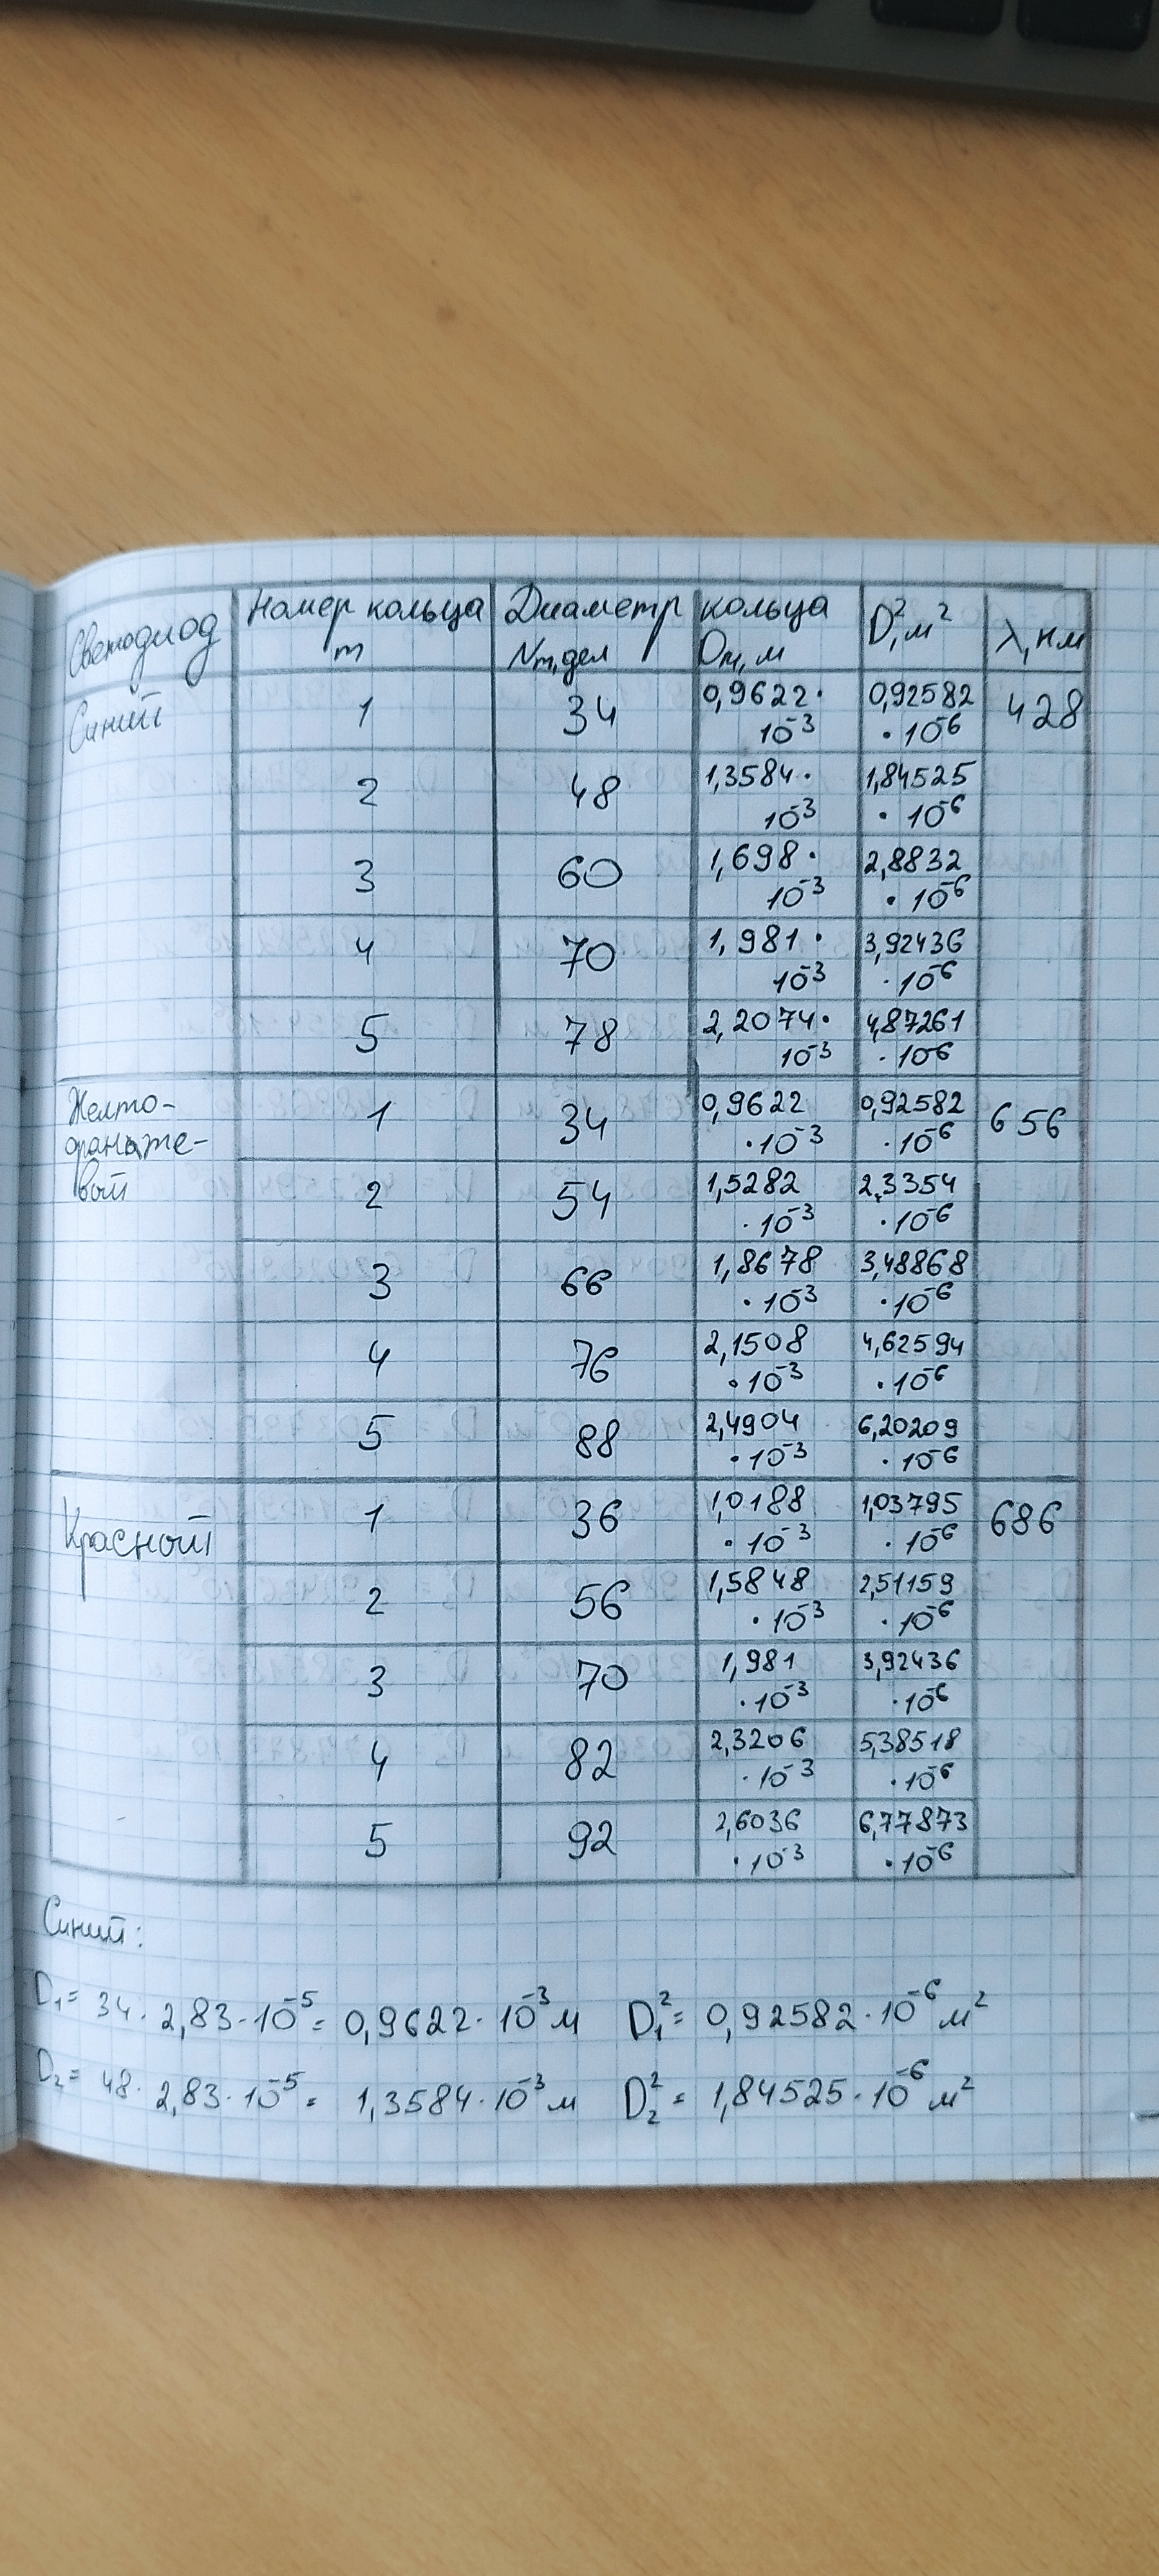 Светодиод Номер кольца m Диаметр кольца Nm, дел Dm, м D², м² λ, нм
Синий 1 34 0,9622 · 10⁻³ 0,92582 · 10⁻⁶ 428
2 48 1,3584 · 10⁻³ 1,84525 · 10⁻⁶
3 60 1,698 · 10⁻³ 2,8832 · 10⁻⁶
4 70 1,981 · 10⁻³ 3,92436 · 10⁻⁶
5 78 2,2074 · 10⁻³ 4,87261 · 10⁻⁶
Желто-оранже-вый 1 34 0,9622 · 10⁻³ 0,92582 · 10⁻⁶ 656
2 54 1,5282 · 10⁻³ 2,3354 · 10⁻⁶
3 66 1,8678 · 10⁻³ 3,48868 · 10⁻⁶
4 76 2,1508 · 10⁻³ 4,62594 · 10⁻⁶
5 88 2,4904 · 10⁻³ 6,20209 · 10⁻⁶
Красный 1 36 1,0188 · 10⁻³ 1,03795 · 10⁻⁶ 686
2 56 1,5848 · 10⁻³ 2,51159 · 10⁻⁶
3 70 1,981 · 10⁻³ 3,92436 · 10⁻⁶
4 82 2,3206 · 10⁻³ 5,38518 · 10⁻⁶
5 92 2,6036 · 10⁻³ 6,77873 · 10⁻⁶
Синий:
D₁ = 34 · 2,83 · 10⁻⁵ = 0,9622 · 10⁻³ м D₁² = 0,92582 · 10⁻⁶ м²
D₂ = 48 · 2,83 · 10⁻⁵ = 1,3584 · 10⁻³ м D₂² = 1,84525 · 10⁻⁶ м²